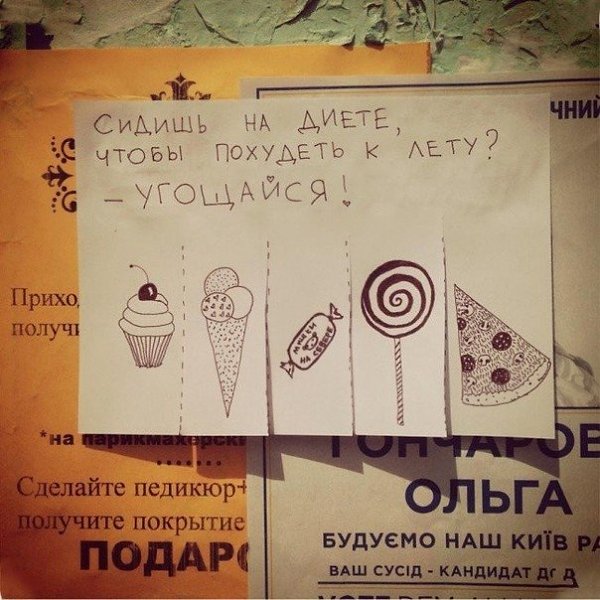 СИДИШЬ НА ДИЕТЕ,
ЧТОБЫ ПОХУДЕТЬ К ЛЕТУ?
– УГОЩАЙСЯ!
МИШКИ
НА СЕВЕРЕ
Прихо
получи
*на парикмахерски
Сделайте педикюр+
получите покрытие
ПОДАР
ЧНИЙ
ГОНЧАРОВ
ОЛЬГА
БУДУЄМО НАШ КИЇВ РА
ВАШ СУСІД - КАНДИДАТ